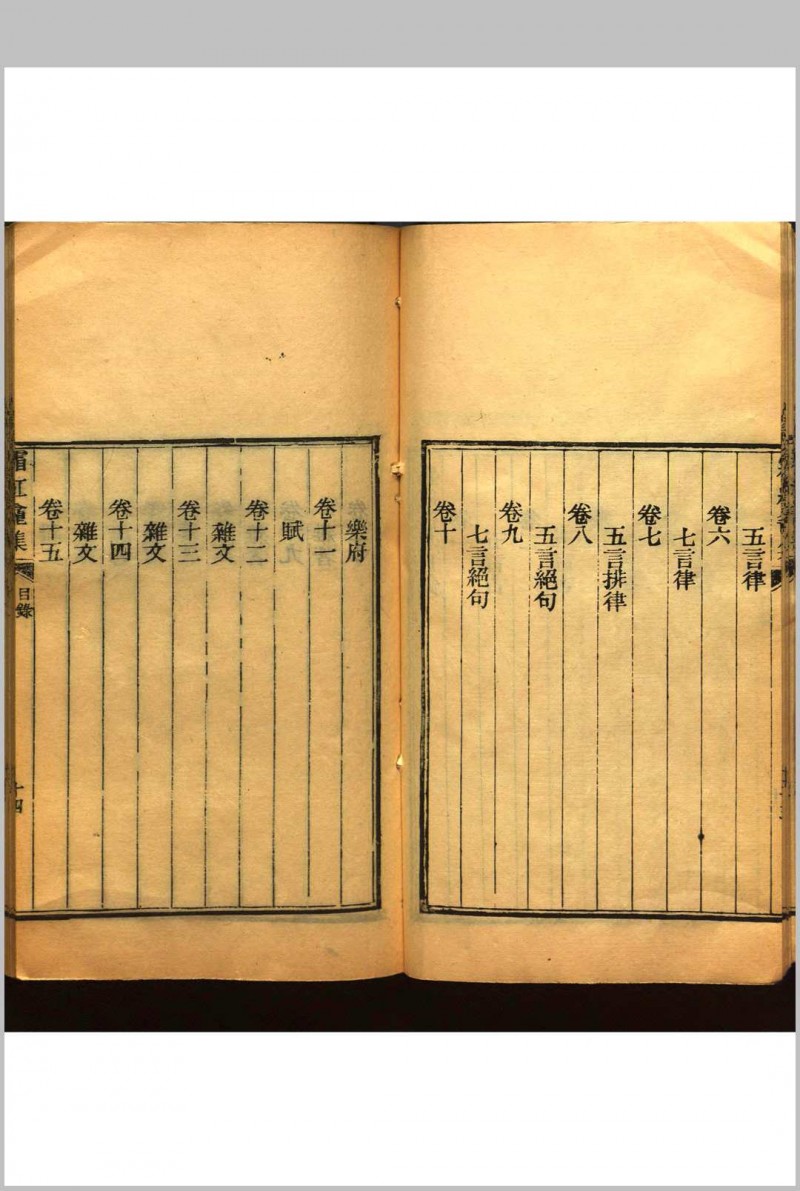 五言律
卷六
七言律
卷七
五言排律
卷八
五言絕句
卷九
七言絕句
卷十
樂府
卷十一
賦
卷十二
雜文
卷十三
雜文
卷十四
雜文
卷十五
霜紅龕集
目錄
十四